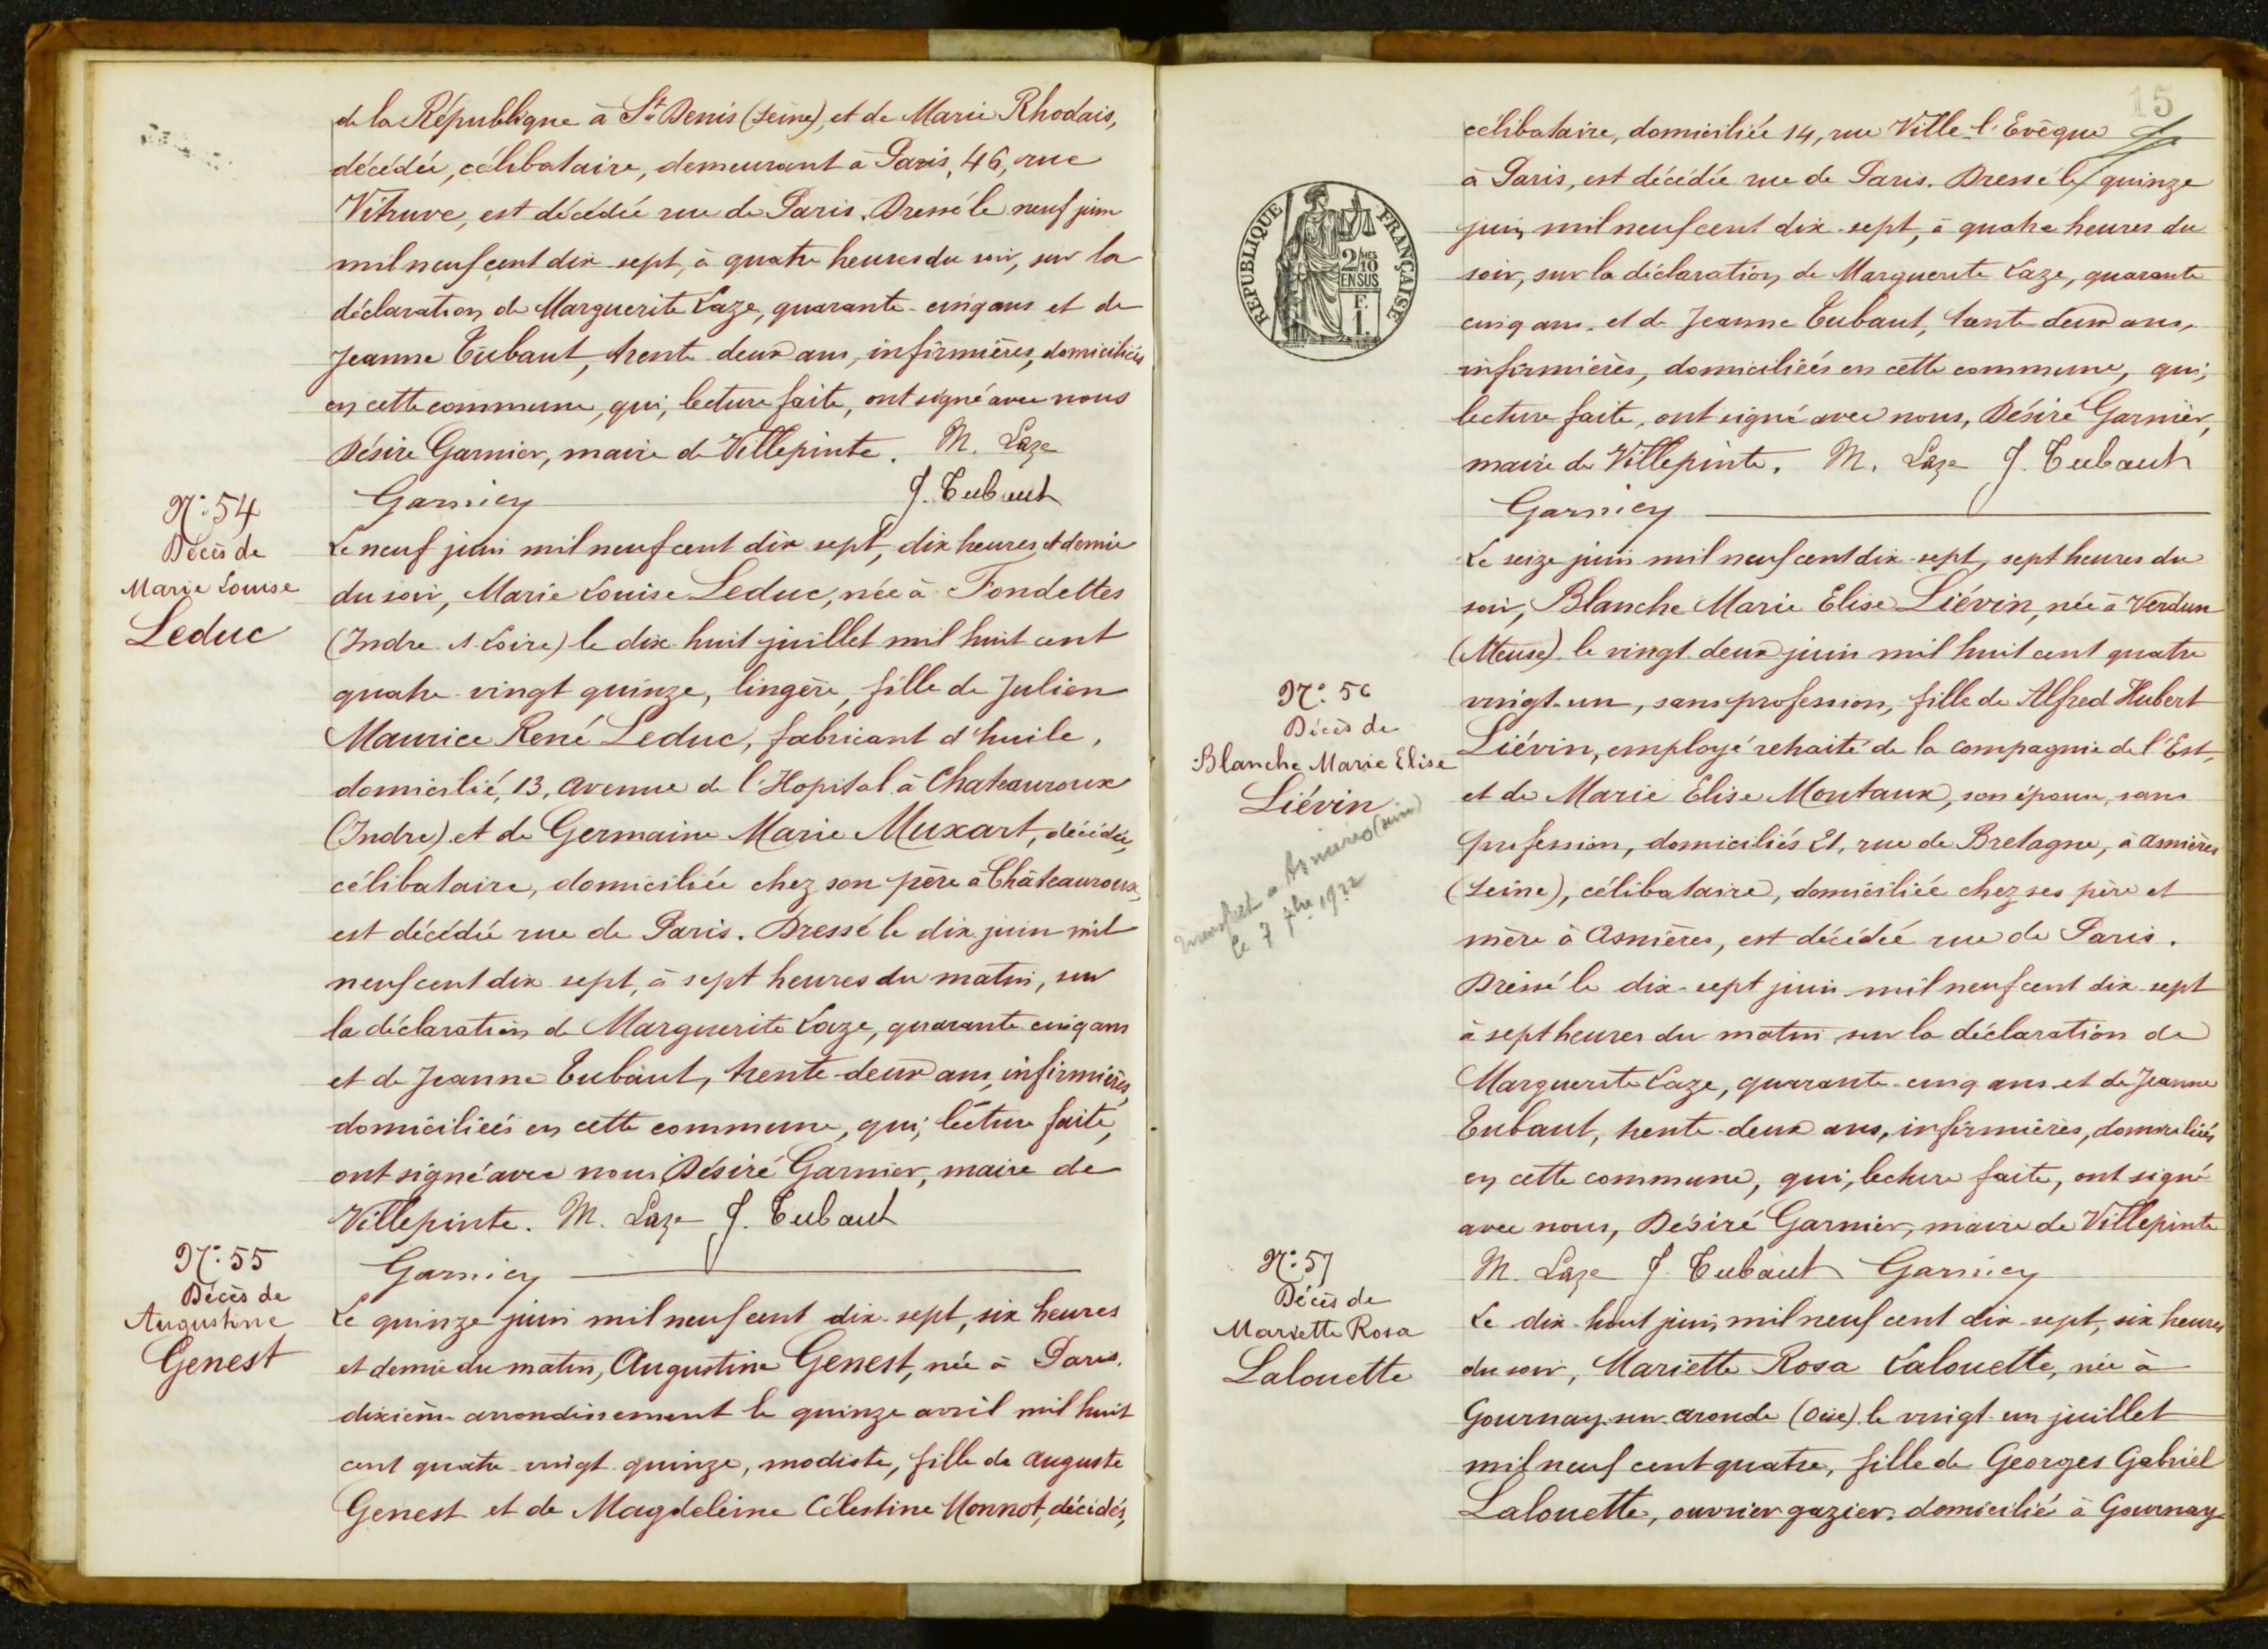 de la République à St Denis (Seine), et de Marie Rhodais,
décédée, célibataire, demeurant à Paris, 46, rue
Vitruve, est décédée rue de Paris. Dressé le neuf juin
mil neuf cent dix-sept, à quatre heures du soir, sur la
déclaration de Marguerite Laze, quarante-cinq ans et de
Jeanne Tubaut, trente deux ans, infirmières, domiciliées
en cette commune, qui, lecture faite, ont signé avec nous
Désiré Garnier, maire de Villepinte. M. Laze
Garnier J. Tubaut
N° 54
Décès de
Marie Louise
Leduc
Le neuf juin mil neuf cent dix sept, dix heures et demie
du soir, Marie Louise Leduc, née à Fondettes
(Indre et Loire) le dix-huit juillet mil huit cent
quatre-vingt quinze, lingère, fille de Julien
Maurice René Leduc, fabricant d'huile,
domicilié, 13, avenue de l'Hopital à Chateauroux
(Indre) et de Germaine Marie Muxart, décédée,
célibataire, domiciliée chez son père à Châteauroux,
est décédée rue de Paris. Dressé le dix juin mil
neuf cent dix sept, à sept heures du matin, sur
la déclaration de Marguerite Laze, quarante cinq ans
et de Jeanne Tubaut, trente-deux ans, infirmières,
domiciliées en cette commune, qui, lecture faite,
ont signé avec nous Désiré Garnier, maire de
Villepinte. M. Laze J. Tubaut
Garnier
N° 55
Décès de
Augustine
Genest
Le quinze juin mil neuf cent dix-sept, six heures
et demie du matin, Augustine Genest, née à Paris,
dixième arrondissement le quinze avril mil huit
cent quatre-vingt-quinze, modiste, fille de Auguste
Genest et de Magdeleine Célestine Monnot, décédés,
15
célibataire, domiciliée 14, rue Ville-l'Evêque
à Paris, est décédée rue de Paris. Dressé le quinze
juin mil neuf cent dix-sept, à quatre heures du
soir, sur la déclaration de Marguerite Laze, quarante
cinq ans, et de Jeanne Tubaut, trente deux ans,
infirmières, domiciliées en cette commune, qui,
lecture faite, ont signé avec nous, Désiré Garnier,
maire de Villepinte. M. Laze J. Tubaut
Garnier
REPUBLIQUE FRANÇAISE
2/10 MES
EN SUS
F.
1.
Le seize juin mil neuf cent dix-sept, sept heures du
soir, Blanche Marie Elise Liévin, née à Verdun
(Meuse) le vingt deux juin mil huit cent quatre
vingt-un, sans profession, fille de Alfred Hubert
Liévin, employé retraité de la compagnie de l'Est,
et de Marie Elise Montaux, son épouse, sans
profession, domiciliés 21, rue de Bretagne, à Asnières
(Seine), célibataire, domiciliée chez ses père et
mère à Asnières, est décédée rue de Paris.
Dressé le dix-sept juin mil neuf cent dix-sept
à sept heures du matin, sur la déclaration de
Marguerite Laze, quarante-cinq ans et de Jeanne
Tubaut, trente-deux ans, infirmières, domiciliées
en cette commune, qui, lecture faite, ont signé
avec nous, Désiré Garnier, maire de Villepinte
M. Laze J. Tubaut Garnier
N° 56
Décès de
Blanche Marie Elise
Liévin
à Asnières (Seine)
le 7 7bre 1922
N° 57
Décès de
Mariette Rosa
Lalouette
Le dix-huit juin mil neuf cent dix-sept, six heures
du soir, Mariette Rosa Lalouette, née à
Gournay-sur-Aronde (Oise) le vingt-un juillet
mil neuf cent quatre, fille de Georges Gabriel
Lalouette, ouvrier gazier, domicilié à Gournay-